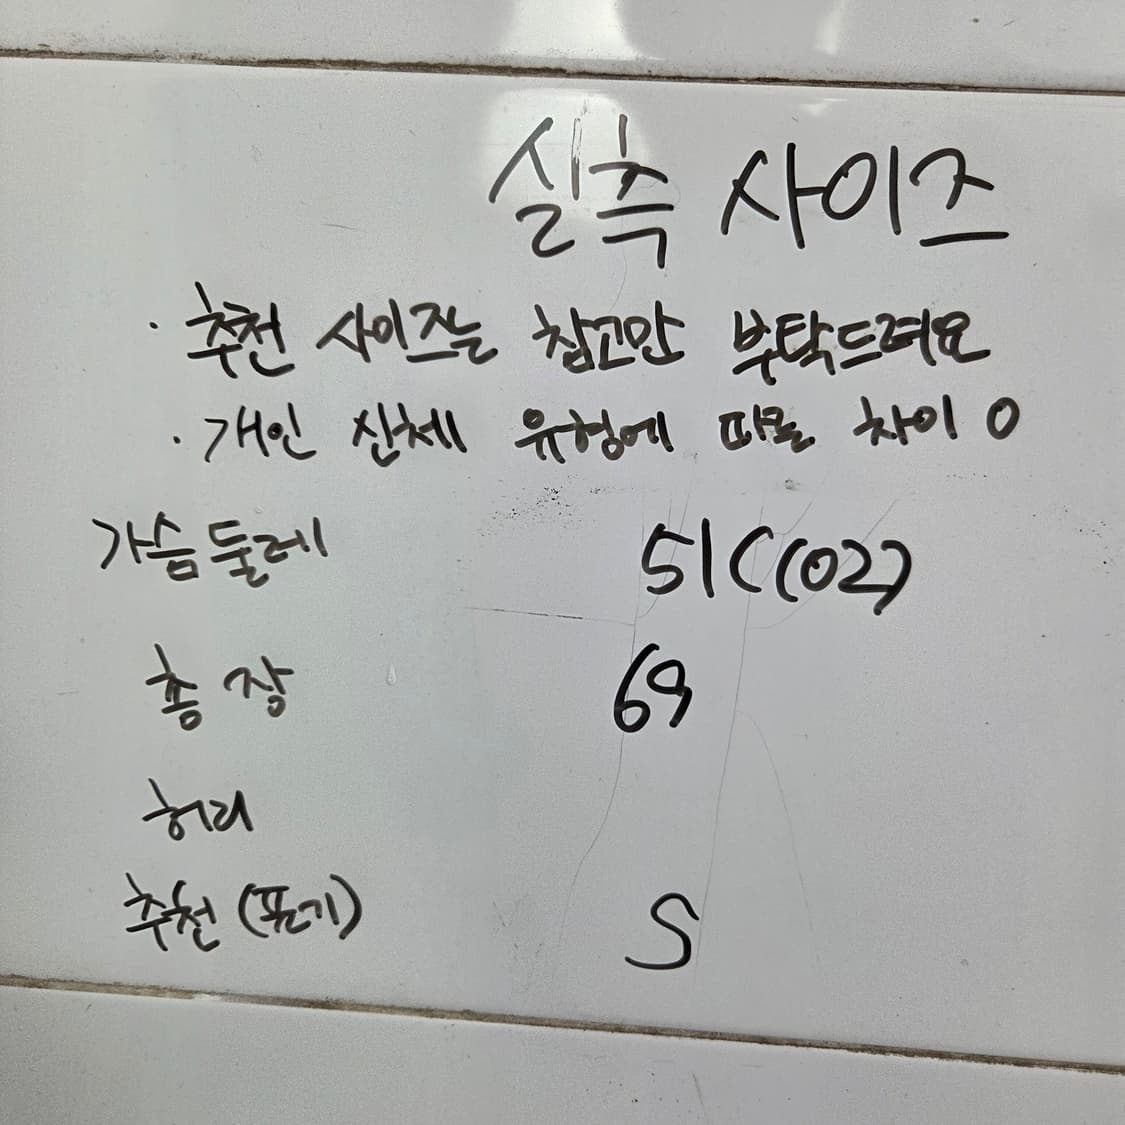 실측 사이즈
· 추천 사이즈는 참고만 부탁드려요
· 개인 신체 유형에 따를 차이 O
가슴둘레 51((102)
총장 69
허리
추천(표기) S